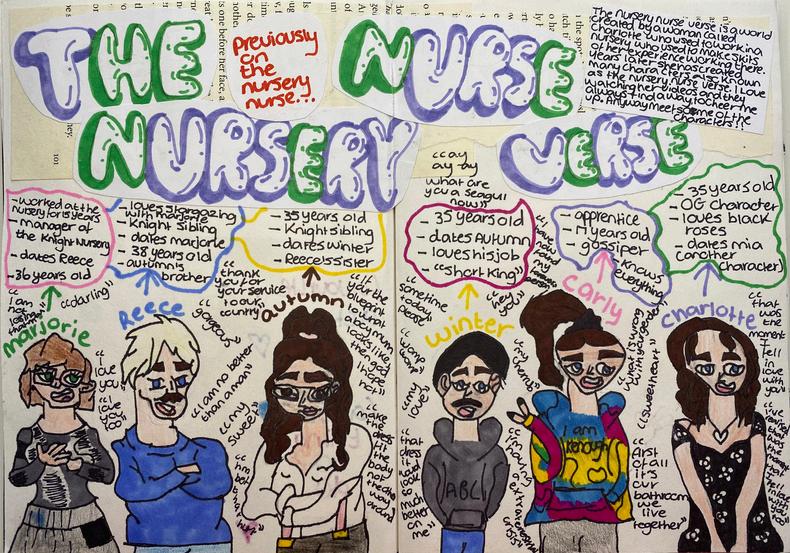 THE NURSE
NURSERY VERSE
Previously
on
the
nursery
nurse...
The Nursery Nurse verse is a world
created by a woman called
Charlotte who used to work in a
nursery who used to make skits
of her experience working there.
Years later she has created
many characters etc known
as the nursery nurse verse. I Love
watching her videos and they
always find a way to cheer me
up. Anyway meet some of the
characters!!
101
- worked at the
nursery for 15 years
manager of
the Knight Nursery
- dates Reece
- 36 years old
- loves stargazing
with marjorie
- Knight sibling
- dates marjorie
- 38 years old
- autumn's
brother
- 35 years old
- Knight sibling
- dates winter
- Reece's sister
"ay
ay ay
what are
you a seagull
now"
- 35 years old
- dates Autumn
- loves his job
- "short king"
- apprentice
- 17 years old
- gossiper
- knows
everything
- 35 years old
- OG character
- loves black
roses
- dates mia
(another
character)
marjorie
Reece
autumn
winter
carly
charlotte
"I am
not
"darling"
"I
love
you"
"I
love
you
too"
"thank
you for
your service
to our
country"
"gorgeous"
"I am no better
than a man"
"my
sweet"
"make
the
dress
fit the
body
not the
way
around
"sometime
today
people"
"my
love"
"that
dress
would
look so
much
better
on me"
"hey
you"
"my cherry"
"what is wrong
with you geordie"
"sweetheart"
"First
of all
it's
our
bathroom
we
live
together"
"that
was
the
moment
I
fell
in
love
with
you"
"I've
realised
that was
the
moment
that
I
fell
in love
with
you"
ABC
I am
Kenough